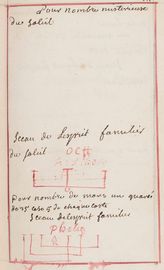 pour nombre misterieuse
du Salut
Sceau de Lesprit families
du Salut
OCH
pour nombre de mars un quaré
de cases de chaque coste
Sceau de lesprit families
Phaleg